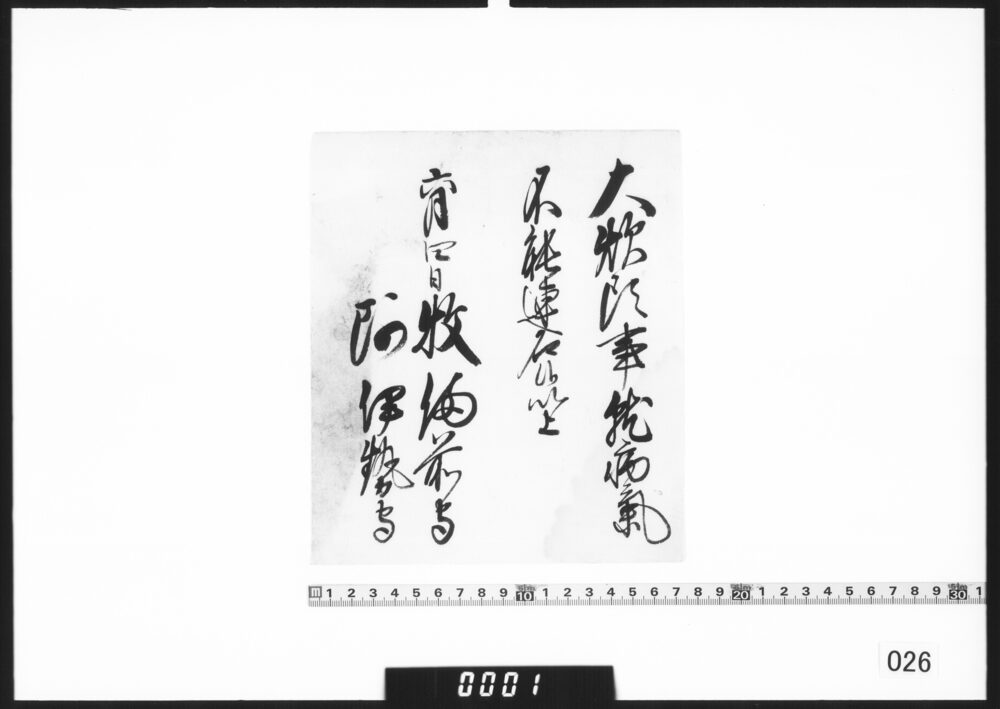 大炊頭事就病氣
不能連名候以上
六月四日 牧備前守
阿伊勢守
1 2 3 4 5 6 7 8 9 10 1 2 3 4 5 6 7 8 9 20 1 2 3 4 5 6 7 8 9 30 1
026
0001